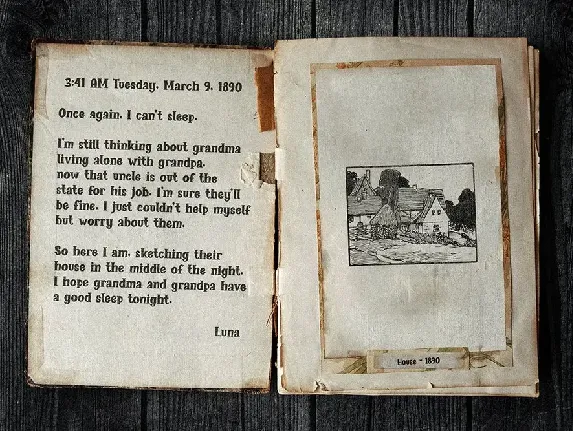 3:41 AM Tuesday. March 9, 1890
Once again. I can't sleep.
I'm still thinking about grandma
living alone with grandpa.
now that uncle is out of the
state for his job. I'm sure they'll
be fine. I just couldn't help myself
but worry about them.
So here I am. sketching their
house in the middle of the night.
I hope grandma and grandpa have
a good sleep tonight.
Luna
House - 1890